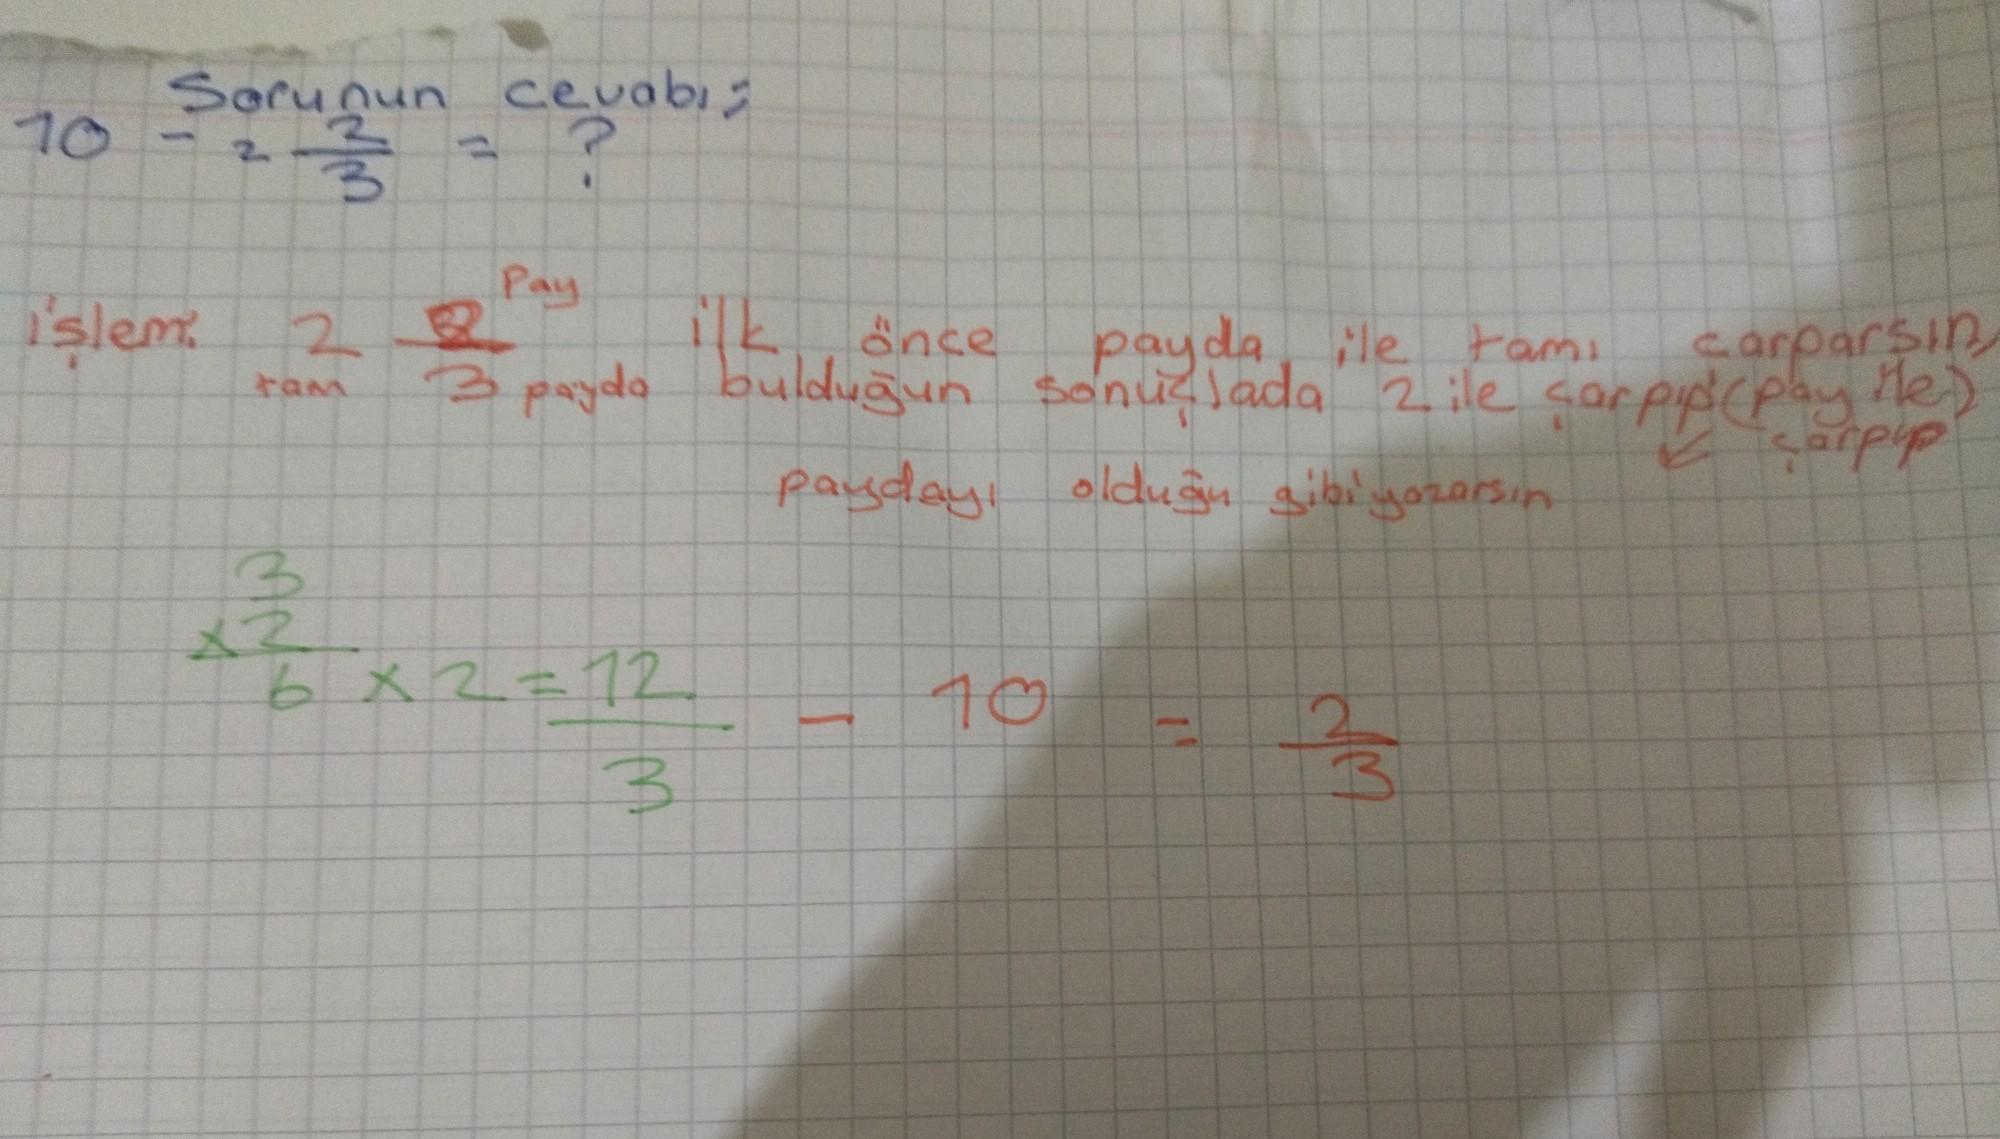 Sorunun cevabı:
10 - 2 2/3 = ?
işlem: 2 2/3 Pay ilk önce payda ile tamı çarparsın
tam payda bulduğun sonuçlada 2 ile çarpıp (pay ile)
çarpıp
paydayı olduğu gibi yazarsın
3
x2
6 x 2 = 12/3 - 10 = 2/3